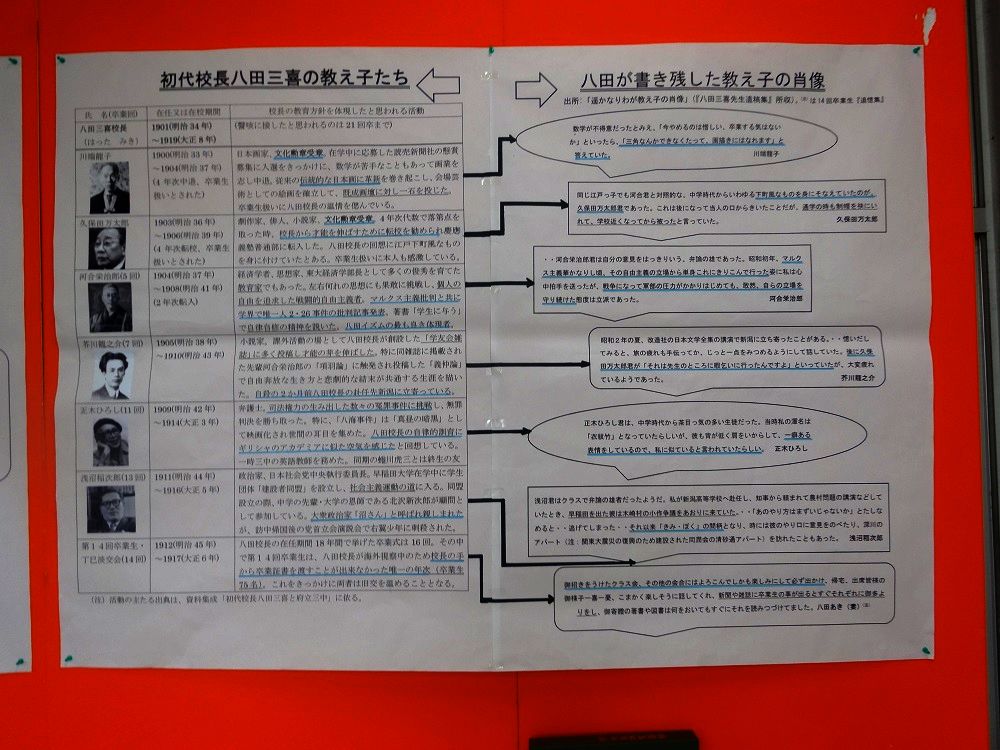 初代校長八田三喜の教え子たち
氏 名(卒業回)
在任又は在校期間
校長の教育方針を体現したと思われる活動
八田三喜校長
(はった みき)
1901(明治34年)
~1919(大正8年)
(謦咳に接したと思われるのは21回卒まで)
川端龍子
1900(明治33年)
~1904(明治37年)
(4年次中退、卒業生
扱いとされた)
日本画家、文化勲章受章。在学中に応募した読売新聞社の懸賞
募集に入選をきっかけに、数学が苦手なこともあって画業を
志し中退。従来の伝統的な日本画に革新を巻き起こし、会場芸
術としての絵画を確立して、既成画壇に対し一石を投じた。
卒業生扱いに八田校長の温情を偲んでいる。
久保田万太郎
1903(明治36年)
~1906(明治39年)
(4年次転校、卒業生
扱いとされた)
劇作家、俳人、小説家、文化勲章受章。4年次代数で落第点
を取った時、校長から才能を伸ばすために転校を勧められ慶應
義塾普通部に転入した。八田校長の回想に江戸下町風なもの
を身に付けていたとある。卒業生扱いに本人も感激している。
河合栄治郎(5回)
1904(明治37年)
~1908(明治41年)
(2年次転入)
経済学者、思想家、東大経済学部長として多くの俊秀を育てた
教育家でもあった。左右何れの思想にも果敢に挑戦し、個人の
自由を追求した戦闘的自由主義者。マルクス主義批判と共に
学界で唯一人2・26事件の批判記事発表。著書「学生に与う」
で自律自修の精神を説いた。八田イズムの最も良き体現者。
芥川龍之介(7回)
1905(明治38年)
~1910(明治43年)
小説家。課外活動の場として八田校長が創設した「学友会雑
誌」に多く投稿し才能の芽を伸ばした。特に同雑誌に掲載され
た先輩河合栄治郎の「項羽論」に触発され投稿した「義仲論」
で自由奔放な生き方と悲劇的な結末が共通する生涯を描い
た。自殺の2か月前八田校長の赴任先新潟に立寄っている。
正木ひろし(11回)
1909(明治42年)
~1914(大正3年)
弁護士。司法権力の生み出した数々の冤罪事件に挑戦し、無罪
判決を勝ち取った。特に、「八海事件」は「真昼の暗黒」とし
て映画化され世間の耳目を集めた。八田校長の自律的訓育に
ギリシャのアカデミアに似た空気を感じたと回想している。
一時三中の英語教師を務めた。同期の蜷川虎三とは終生の友
浅沼稲次郎(13回)
1911(明治44年)
~1916(大正5年)
政治家、日本社会党中央執行委員長。早稲田大学在学中に学生
団体「建設者同盟」を設立し、社会主義運動の道に入る。同盟
設立の際、中学の先輩・大学の恩師である北沢新次郎が顧問と
して参加している。大衆政治家「沼さん」と呼ばれ親しまれた
が、訪中帰国後の党首立会演説会で右翼少年に刺殺された。
第14回卒業生・
丁巳淡交会(14回)
1912(明治45年)
~1917(大正6年)
八田校長の在任期間18年間で挙げた卒業式は16回。その中
で第14回卒業生は、八田校長が海外視察中のため校長の手
から卒業証書を渡すことが出来なかった唯一の年次(卒業生
75名)。これをきっかけに両者は旧交を温めることとなる。
(注)活動の主たる出典は、資料集成「初代校長八田三喜と府立三中」に依る。
八田が書き残した教え子の肖像
出所:「遥かなりわが教え子の肖像」(『八田三喜先生遺稿集』所収)、(*)は14回卒業生『追憶集』
数学が不得意だったとみえ、「今やめるのは惜しい、卒業する気はない
か」といったら、「三角なんかできなくたって、画描きにはなれます」と
答えていた。 川端龍子
同じ江戸っ子でも河合君と対照的な、中学時代からいわゆる下町風なものを身にそなえていたのが、
久保田万太郎君であった。これは後になって当人の口からきいたことだが、通学の時も制帽を袂にい
れて、学校近くなってから被ったと言っていた。 久保田万太郎
・・河合栄治郎君は自分の意見をはっきりいう、弁論の雄であった。昭和初年、マルク
ス主義華かなりし頃、その自由主義の立場から単身これにきりこんで行った姿に私は心
中拍手を送ったが、戦争になって軍部の圧力がかかりはじめても、敢然、自らの立場を
守り続けた態度は立派であった。 河合栄治郎
昭和2年の夏、改造社の日本文学全集の講演で新潟に立ち寄ったことがある。・・憶いだし
てみると、旅の疲れも手伝ってか、じっと一点をみつめるようにして話していた。後に久保
田万太郎君が「それは先生のところに暇乞いに行ったんですよ」といっていたが、大変疲れ
ているようであった。 芥川龍之介
正木ひろし君は、中学時代から茶目っ気の多い生徒だった。当時私の渾名は
「衣紋竹」となっていたらしいが、彼も背が低く肩をいからして、一癖ある
表情をしているので、私に似ていると言われていたらしい。 正木ひろし
浅沼君はクラスで弁論の雄者だったようだ。私が新潟高等学校へ赴任し、知事から頼まれて農村問題の講演などしてい
たとき、早稲田を出た彼は木崎村の小作争議をあおりに来ていた。・・「あのやり方はまずいじゃないか」とたしな
めると・・逃げてしまった・・それ以来「きみ・ぼく」の間柄となり、時には彼のやり口に意見をのべたり、深川の
アパート(注:関東大震災の復興のため建設された同潤会の清砂通アパート)を訪れたこともあった。 浅沼稲次郎
御招きをうけたクラス会、その他の会合にはよろこんでしかも楽しみにして必ず出かけ、帰宅、出席皆様の
御様子一喜一憂、こまかく楽しそうに話してくれ、新聞や雑誌に卒業生の事が出るとすぐそれぞれに御多よ
りをし、御寄贈の著書や図書は何をおいてもすぐにそれを読みつづけてました。八田あき(妻)(*)